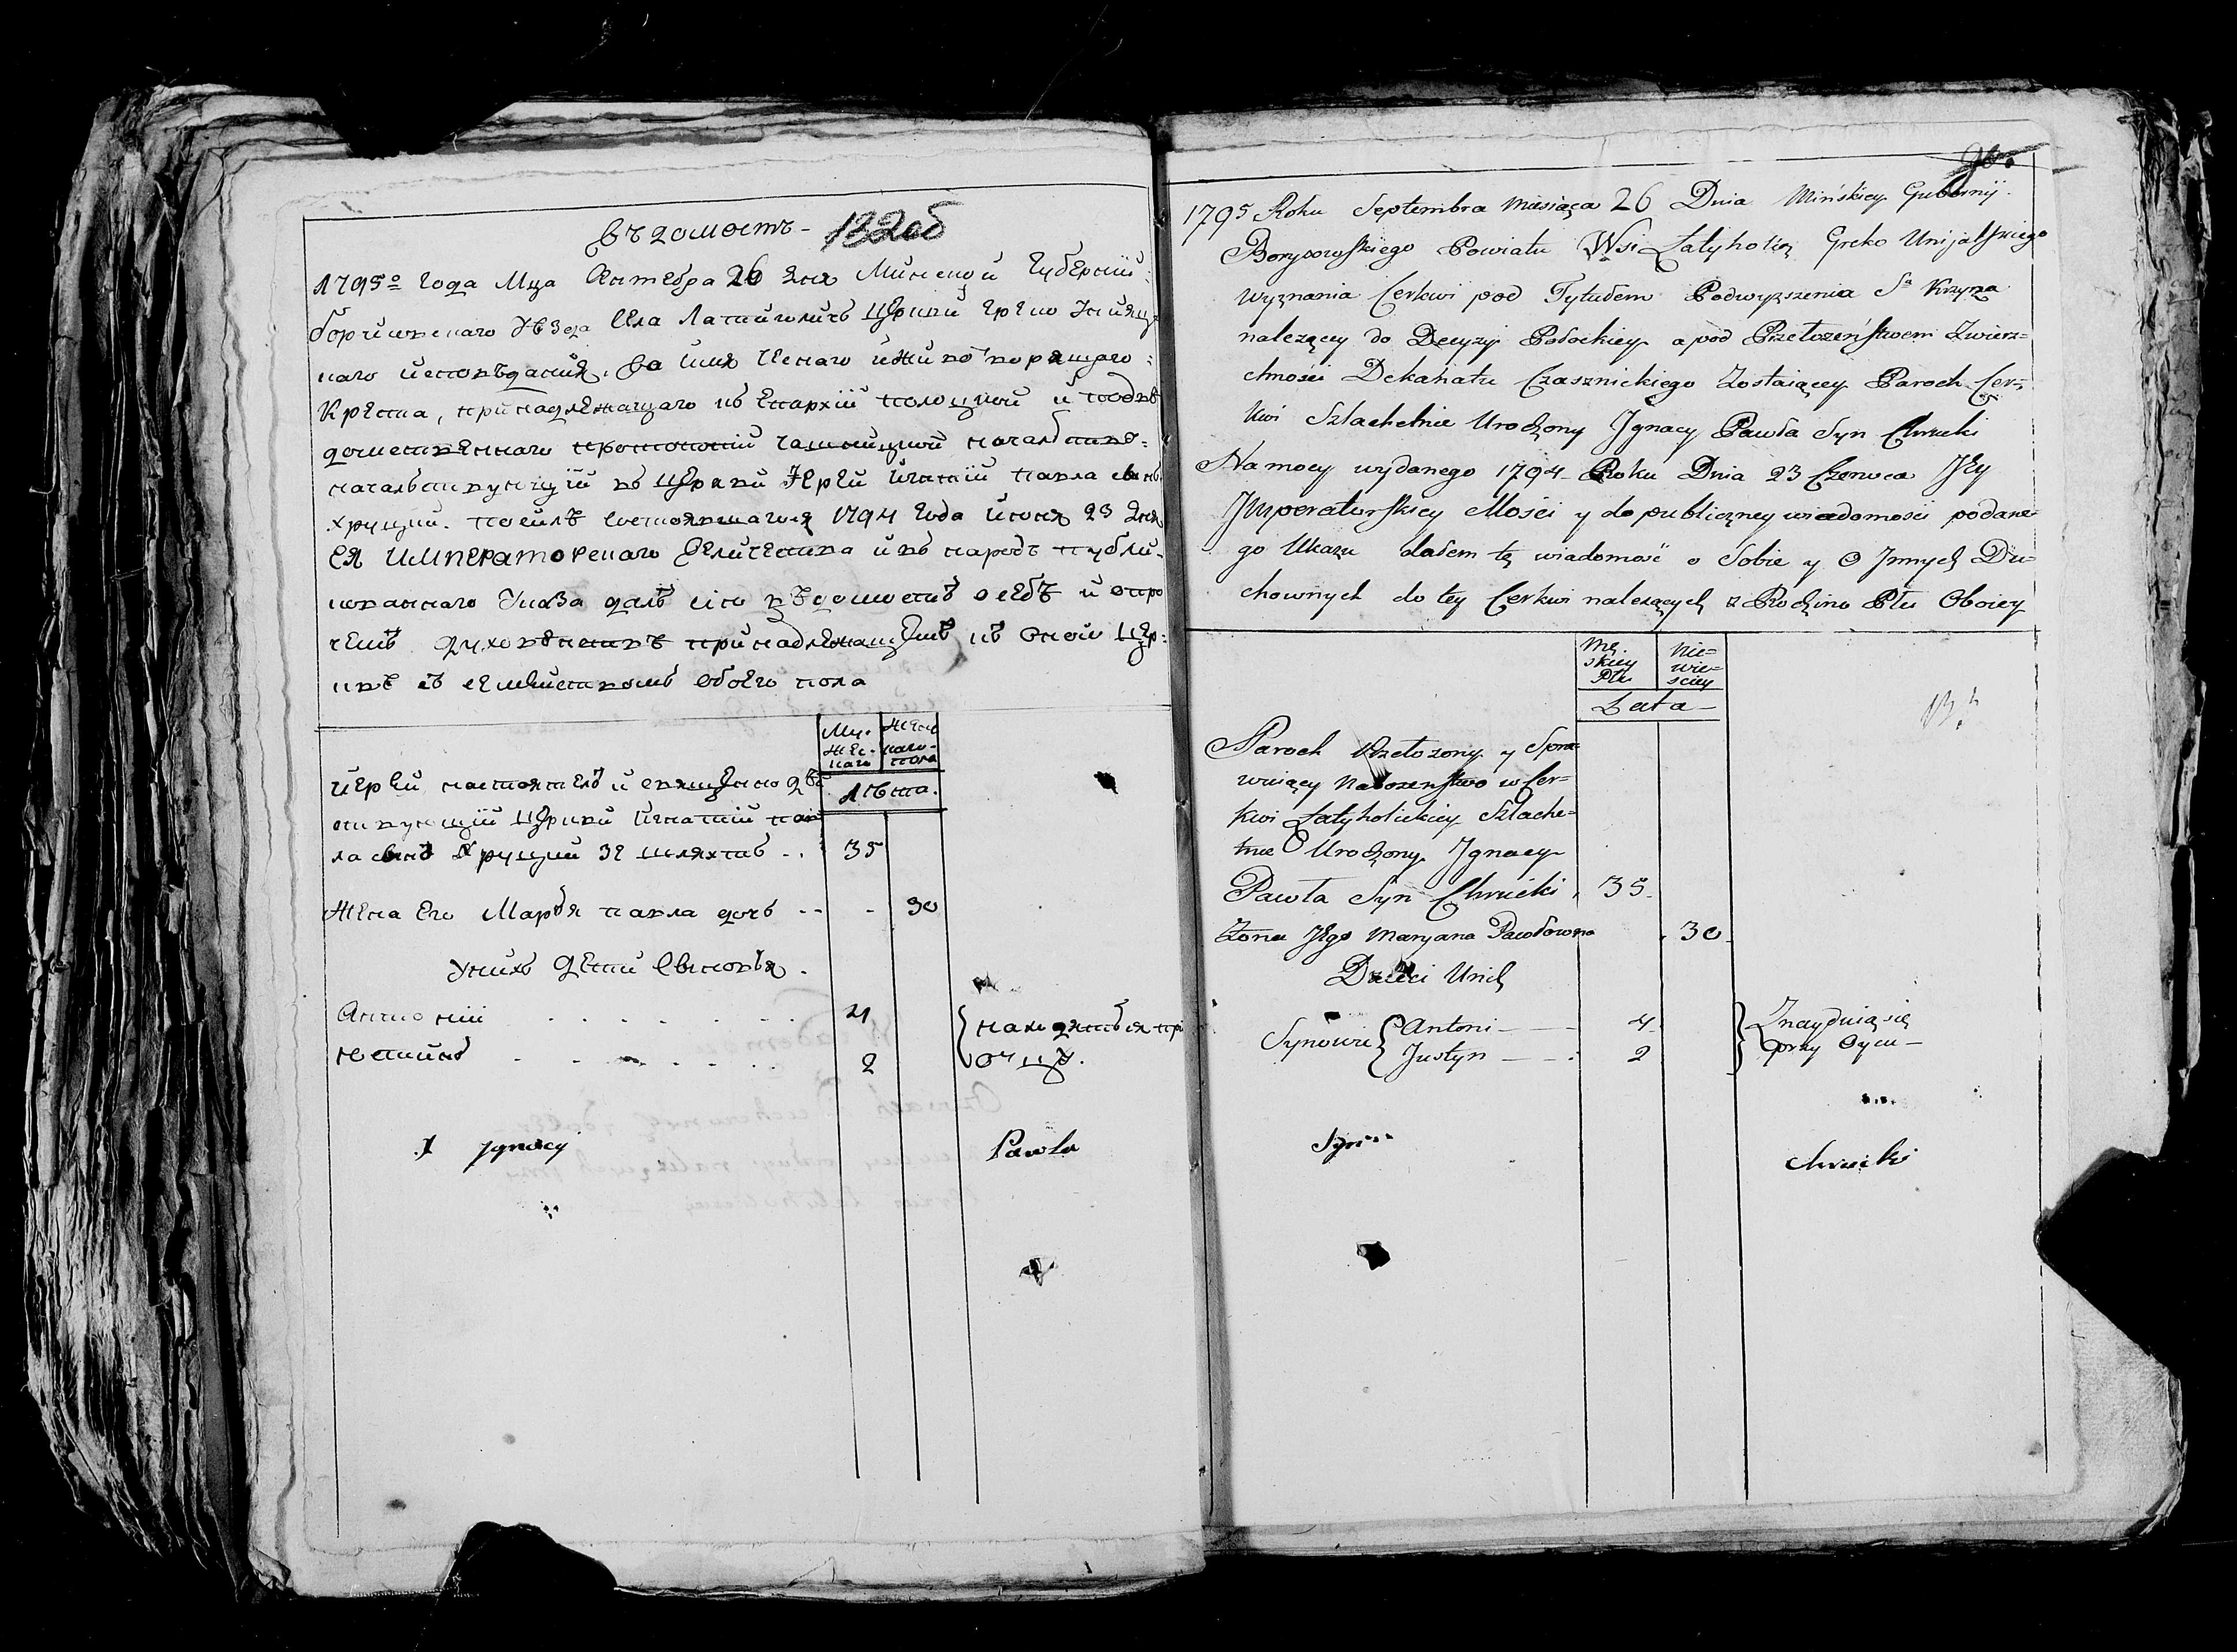 Вѣдомость - 122об
1795го Года Мца Октебра 26 Дня Минской Губернии
борисовского Уѣзда Села Латыголичь Церкви Греко Унияц
каго исповѣдания, во имя Чеснаго и животворящаго
Креста, принадлежащаго къ Епархии полоцкой и подвѣ
домственнаго протопопии чашницкой
начальствующий въ Церкви Иерей Игнатий павла сынъ
Хруцкий. по силѣ состоявшагося 1794 Года июня 23 Дня
ЕЯ ИМПЕРАТОРСКАГО Величества и въ народъ публи-
кованнаго Указа далъ сию вѣдомость о себѣ и о про
чемъ духовенствѣ принадлежащемъ къ оной Цер=
квѣ съ семействомъ обоего пола
Му= Жено
жес= каго=
каго пола
лѣта.
иерей настоятель и священнодѣй
ствующий Церкви Игнатий пав
ла сынъ Хруцкий зе шляхтъ - . 35
Жена Его Марья павла дочь - - - 30
У нихъ дети Сыновья.
Антоний . . . . . . 4 находятъся при
Юстинъ . . . . . . 2 отцу.
Jgnacy Pawła
1795 Roku Septembra Miesiąca 26 Dnia Mińskiey Gubernij
Borysowskiego Powiatu Wsi Łatyholicz Greko Unijatskiego
wyznania Cerkwi pod Tytułem Podwyzszenia Sº Krzyza
nalezący do Decyzyi Połockiey a pod Przełozeństwem Zwierz=
chności Dekanatu Czasznickiego Zostaiącey Paroch Cer=
kwi Szlachetnie Urodzony Jgnacy Pawła Syn Chrucki
Na mocy wydanego 1794 Roku Dnia 23 Czerwca Jey
Jmperatorskiey Mości y do publiczney wiadomości podane=
go Ukazu dałem tę wiadomość o Sobie y O Jnnych Du=
chownych do tey Cerkwi nalezących z Rodzino Płci Oboiey
Mę. Nie=
skiey wie=
Płci sciey
Lata
Paroch Przełozony y Spra=
wuiący Nabozenstwo w Cer=
kwi Łatyholickiey Szlache=
tnie Urodzony Jgnacy
Pawła Syn Chrucki . 35.
Zona Jego Maryana Pawłowna . 30.
Dzieci Unich
Synowie Antoni - - 4. Znayduią się
Justyn - - . 2 przy Oycu -
Syn
Chrucki